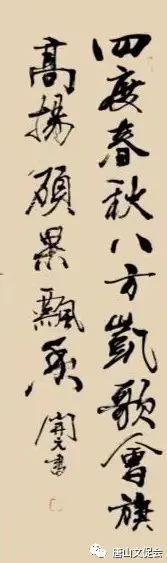 四度春秋八方凱歌會旗
高揚碩果飄香
開元書
唐山文促会